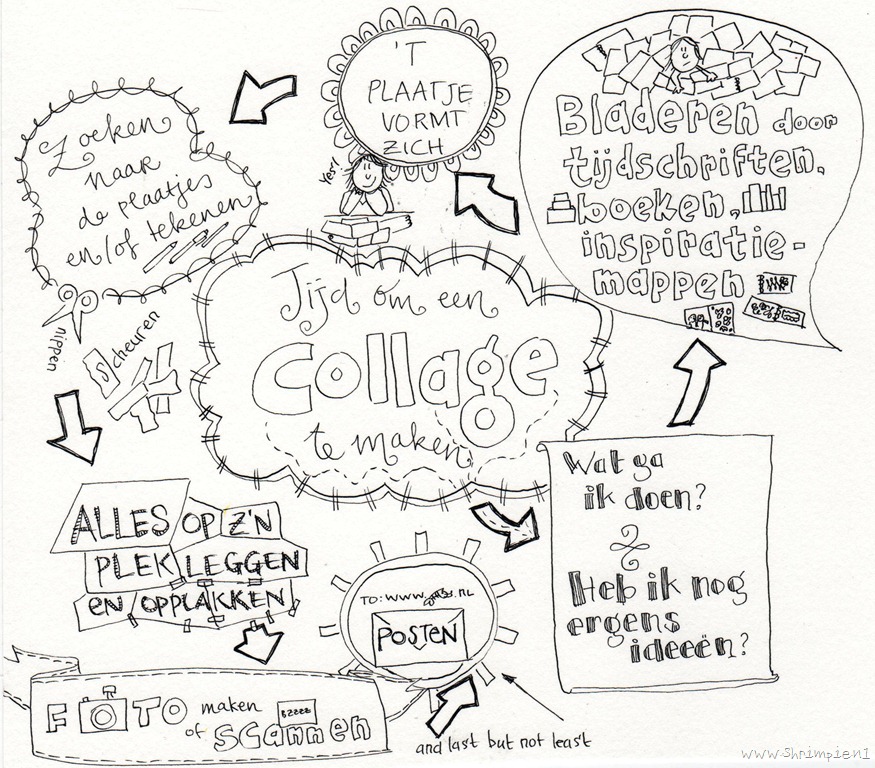 Tijd om een
collage
te maken
Wat ga
ik doen?
Heb ik nog
ergens
ideeën?
Bladeren door
tijdschriften,
boeken,
inspiratie-
mappen
'T
PLAATJE
VORMT
ZICH
Yes!
Zoeken
naar
de plaatjes
en/of tekenen
nippen
Scheuren
ALLES OP Z'N
PLEK LEGGEN
en OPPLAKKEN
FOTO maken
of scannen
BZZZZ
TO: WWW. .NL
POSTEN
and last but not least
www.Shrimpien1